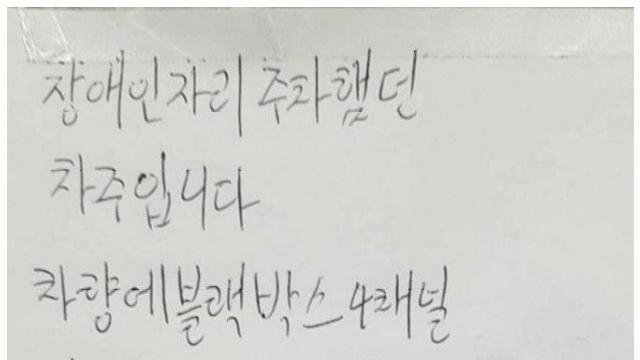 장애인자리 주차햄던
차주입니다
차량에블랙박스4채널